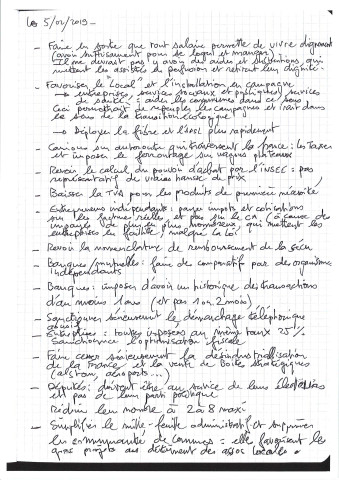 Le 5/02/2019 -
- Faire en sorte que tout salaire permette de vivre dignement
(avoir suffisamment pour se loger et manger)
Il ne devrait pas y avoir des aides et subventions, qui
mettent les assistés en perfusion et retirent leur dignité.
- Favoriser le "local" et l'installation en campagne
→ entreprises, services sociaux et postiques, services
de santé : aider les communes dans ce sens
Ceci permettrait de repeupler les campagnes et irait dans
le sens de la transition écologique
→ Déployer la fibre et l'ADSL plus rapidement
- Camions sur autoroute qui traversent la France : les taxer
et imposer le ferroutage sur wagons plateaux
- Revoir le calcul du pouvoir d'achat par l'INSEE : pas
représentatif de vraies hausses de prix
- Baisser la TVA pour les produits de première nécessité
- Entrepreneurs indépendants : payer impôts et cotisations
sur les factures réelles et pas sur le CA (à cause des
impayés de plus en plus nombreux, qui mettent les
entreprises en faillite, malgré la loi)
- Revoir la nomenclature de remboursement de la sécu
- Banques/mutuelles : faire de comparatif par des organismes
indépendants
- Banques : imposer d'avoir un historique des transactions
d'au moins 1 an (et pas 1 ou 2 mois)
- Sanctionner sérieusement le démarchage téléphonique
abusif
- Entreprises : toutes imposées au même taux 25%
Sanctionner l'optimisation fiscale
- Faire cesser sérieusement la désindustrialisation
de la France et la vente de boîtes stratégiques
(Alstom, aéroports...)
- Députés : doivent être au service de leurs électeurs
et pas de leur parti politique
Réduire leur nombre à 2 à 8 maxi
- Simplifier le mille-feuille administratif et supprimer
les communautés de communes : elles favorisent les
gros projets au détriment des assoc locales.